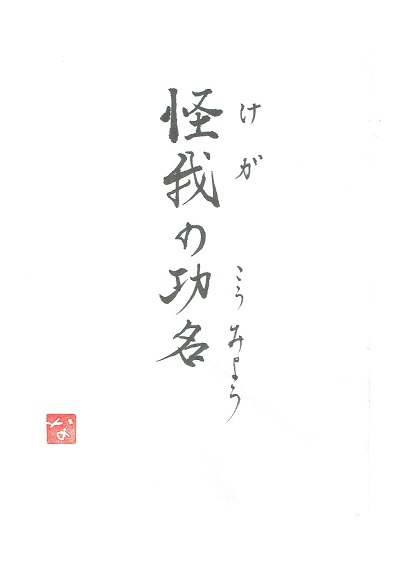 怪我の功名
けが
こうみょう
な